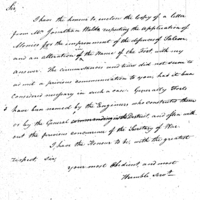 Sir,
I have the honour to enclose the copy of a letter
from Mr. Jonathan Waldo respecting the application of
Monies for the improvement of the defences of Salem
and an alteration of the Name of the Fort with my
answer. The circumstances and time did not seem to
me
a previous communication to you has it been
considered necessary in such a case. Generally Forts
have been named by the Engineers who constructed them
or by the General commanding in the District, and often with
out the previous concurrence of the Secretary of War.
I have the Honour to be with the greatest
respect Sir,
your most Obedient, and most
Humble Serv.t